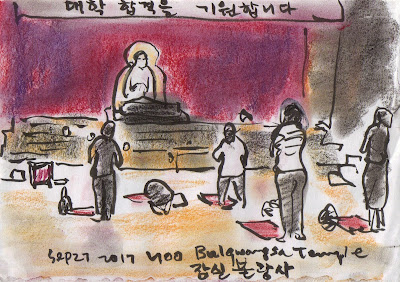 대학 합격을 기원합니다
Sep27 2017 YOO Bulgwangsa Temple
잠실 불광사